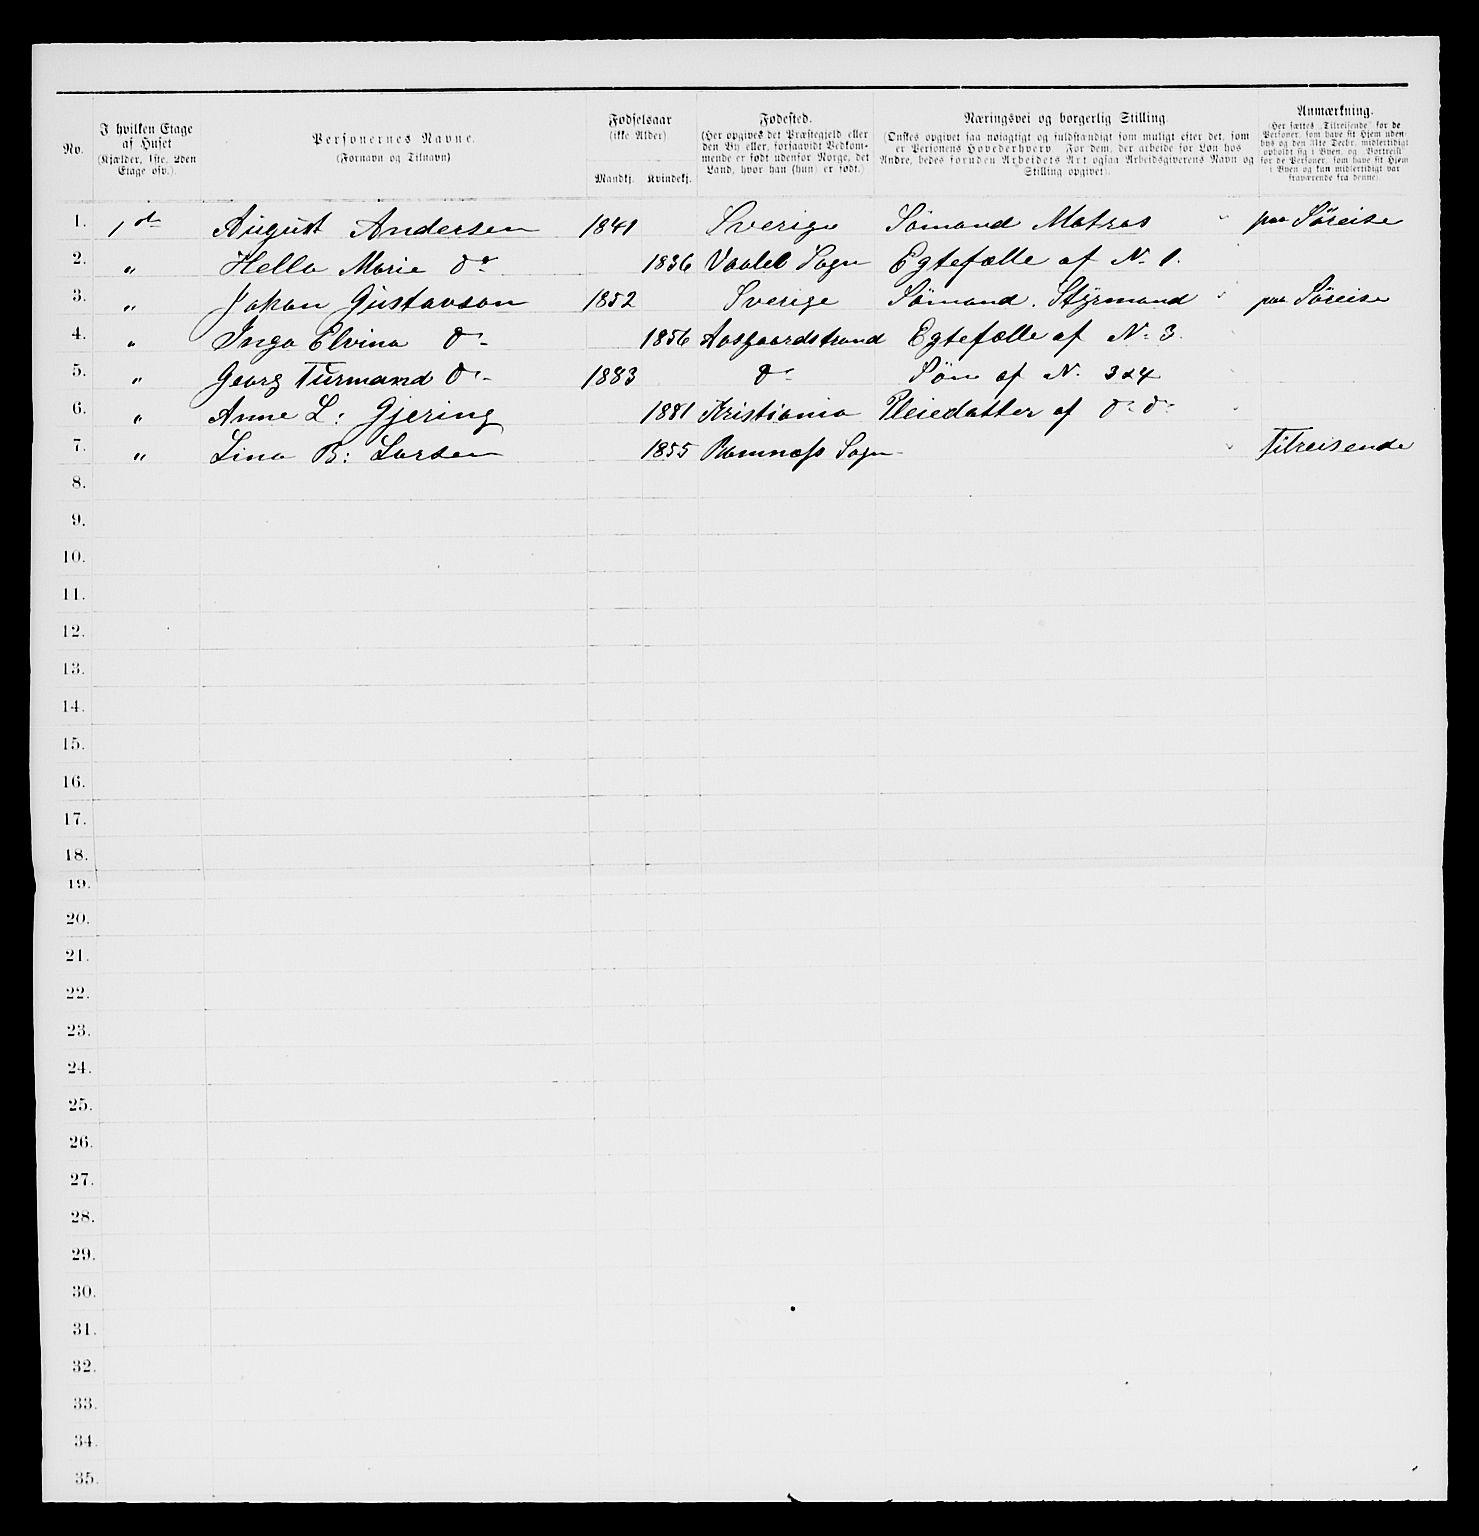 No.
I hvilken Etage af Huset
(Kjælder, 1ste, 2den Etage osv.).
Personernes Navne.
(Fornavn og Tilnavn)
Fødselsaar
(ikke Alder)
Mandkj. Kvindekj.
Fødested.
(Her opgives det Præstegjeld eller den By eller, forsaavidt Vedkommende er født udenfor Norge, det Land, hvor han (hun) er født.)
Næringsvei og borgerlig Stilling.
(Ønskes opgivet saa nøiagtigt og fuldstændigt som muligt efter det, som er Personens Hovederhverv. For dem, der arbeide for Løn hos Andre, bedes foruden Arbeidets Art ogsaa Arbeidsgiverens Navn og Stilling opgivet).
Anmærkning.
(Her sættes „Tilreisende" for de Personer, som have sit Hjem udenbys og den 31te Decbr. midlertidigt opholdt sig i Byen, og „Bortreist" for de Personer, som have sit Hjem i Byen og kun midlertidigt var fraværende fra denne).
1. 1 ste August Andersen 1841 Sverige Sømand Matros paa Søreise
2. " Hella Marie Do 1836 Vaalel Sogn Egtefælle af No 1.
3. " Johan Gustavson 1852 Sverige Sømand. Styrmand paa Søreise
4. " Inga Elvina Do 1856 Aasgaardstrand Egtefælle af No 3.
5. " Georg Turmand Do 1883 Do Søn af N. 3 & 4
6. " Anne L: Gjering 1881 Kristiania Pleiedatter af Do Do
7. " Lina B: Larsen 1855 Ramnæss Sogn Tilreisende
8.
9.
10.
11.
12.
13.
14.
15.
16.
17.
18.
19.
20.
21.
22.
23.
24.
25.
26.
27.
28.
29.
30.
31.
32.
33.
34.
35.